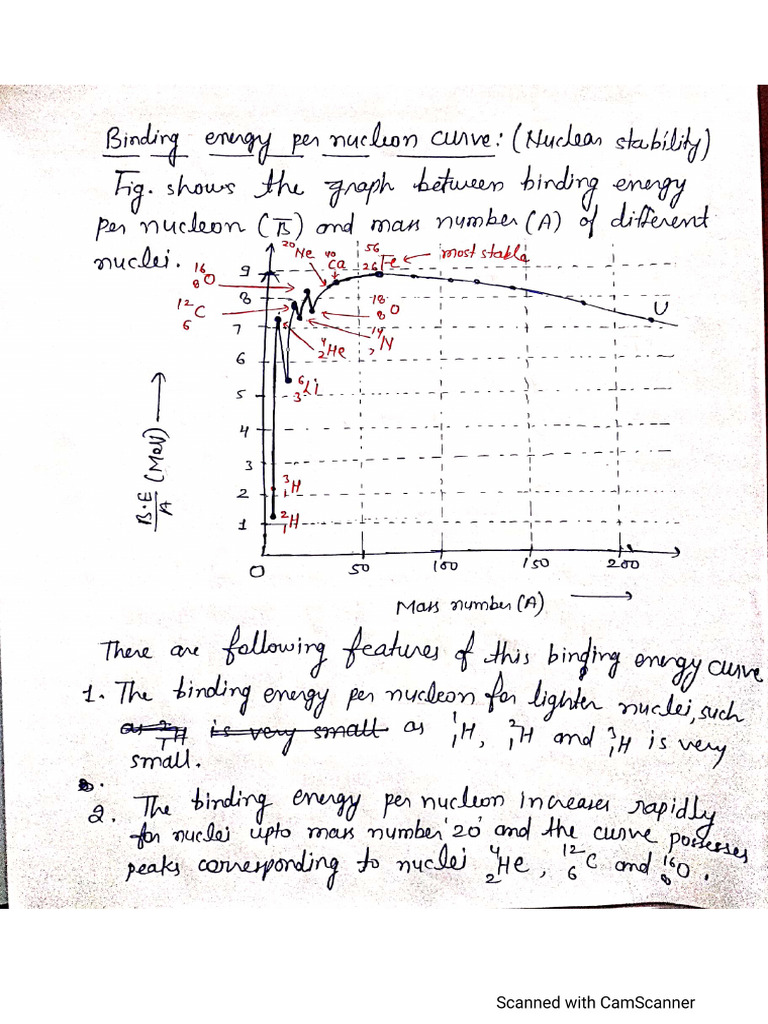 Binding energy per nucleon curve: (Nuclear stability)
Fig. shows the graph between binding energy
per nucleon (B̅) and mass number (A) of different
nuclei.
²⁰Ne ⁴⁰Ca ⁵⁶₂₆Fe ← most stable
¹⁶₈O
¹²₆C
¹⁸₈O
¹⁴₇N
⁴₂He
⁶₃Li
³₁H
²₁H
U
9
8
7
6
5
4
3
2
1
B.E/A (MeV) →
0 50 100 150 200
Mass number (A) →
There are following features of this binding energy curve
1. The binding energy per nucleon for lighter nuclei, such
as ²₁H is very small as ¹₁H, ²₁H and ³₁H is very
small.
2. The binding energy per nucleon increases rapidly
for nuclei upto mass number '20' and the curve possesses
peaks corresponding to nuclei ⁴₂He, ¹²₆C and ¹⁶₈O.
Scanned with CamScanner